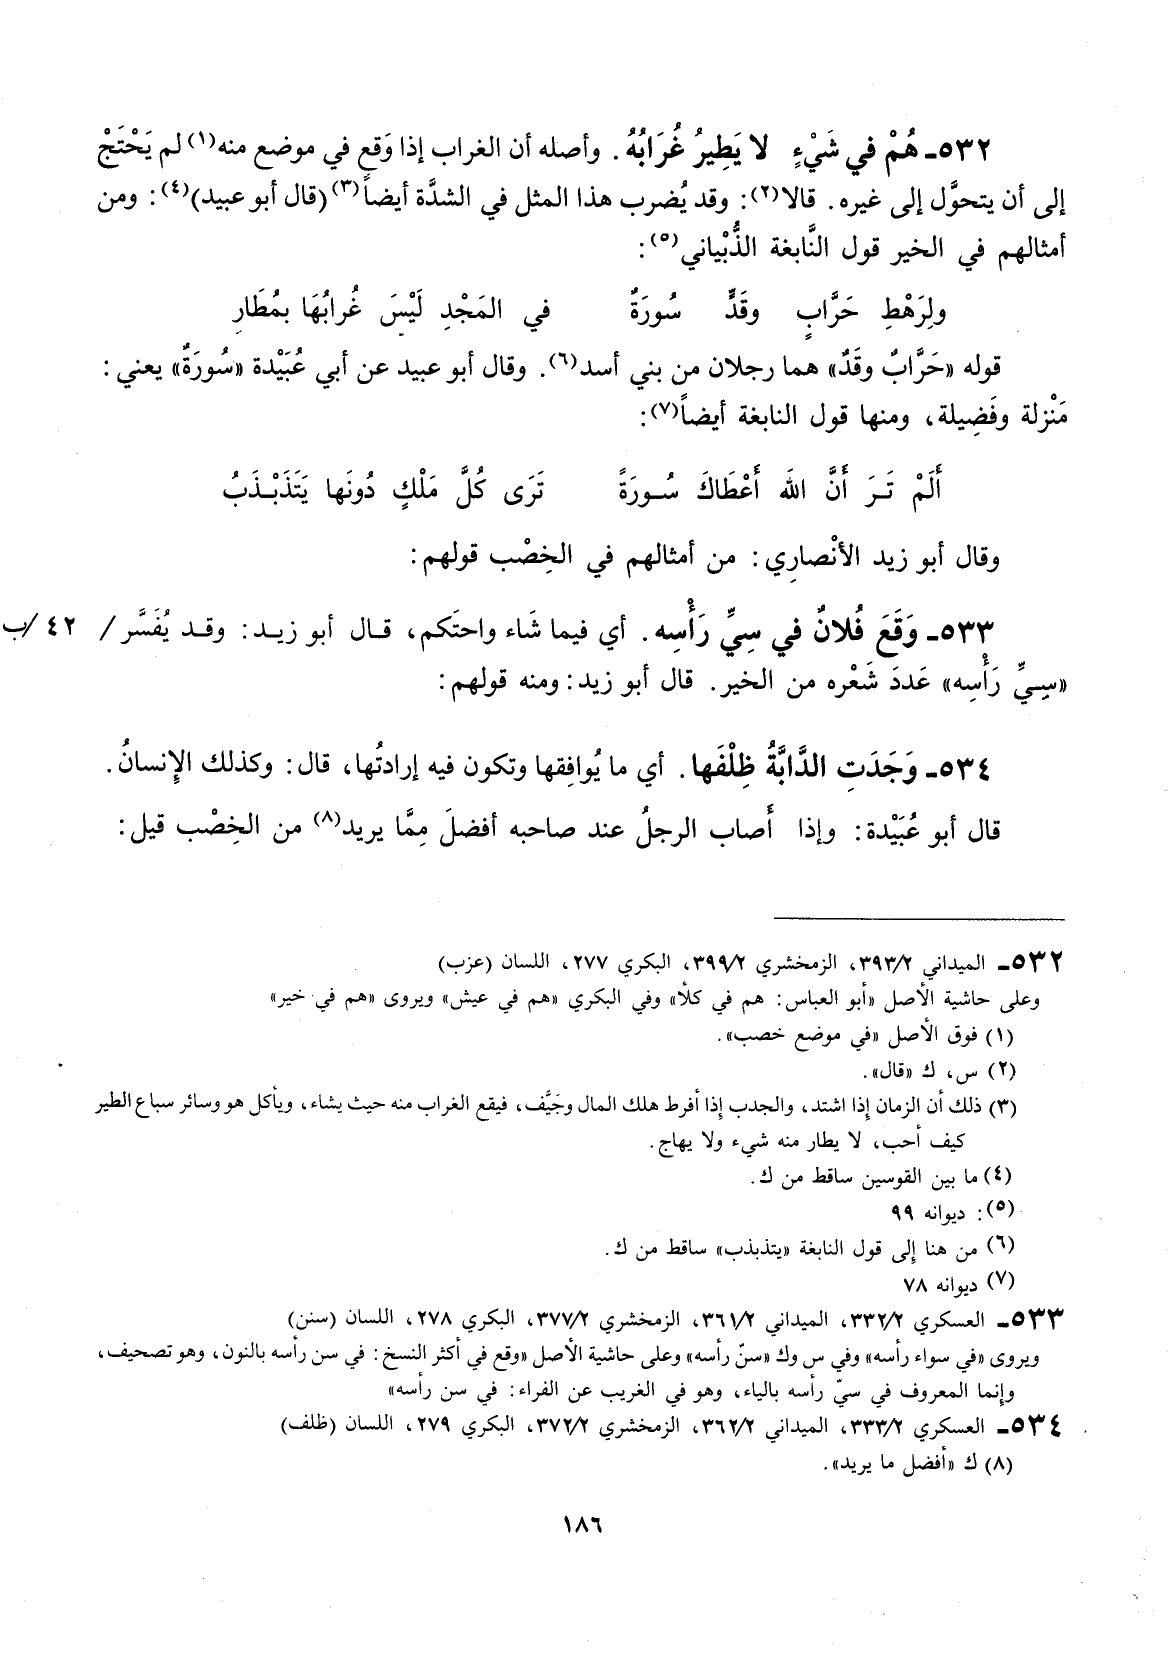 ٥٣٢ـ هُمْ في شَيْءٍ لا يَطِيرُ غُرَابُهُ. وأصله أن الغراب إذا وَقع في موضع منه(١) لم يَحْتَجْ
إلى أن يتحوَّل إلى غيره. قالا(٢): وقد يُضرب هذا المثل في الشدَّة أيضاً(٣) (قال أبو عبيد)(٤): ومن
أمثالهم في الخير قول النَّابغة الذُّبْياني(٥):
ولِرَهْطِ حَرَّابٍ وقَدٍّ سُورَةٌ في المَجْدِ لَيْسَ غُرابُهَا بمُطَارِ
قوله «حَرَّابٌ وقَدٌ» هما رجلان من بني أسد(٦). وقال أبو عبيد عن أبي عُبَيْدة «سُورَةٌ» يعني:
مَنْزلة وفَضِيلة، ومنها قول النابغة أيضاً(٧):
أَلَمْ تَـرَ أَنَّ اللهَ أَعْطَاكَ سُـورَةً تَرَى كُلَّ مَلْكٍ دُونَها يَتَذَبْـذَبُ
وقال أبو زيد الأنْصارِي: من أمثالهم في الخِصْب قولهم:
٥٣٣ـ وَقَعَ فُلانٌ في سِيِّ رَأْسِه. أي فيما شَاء واحتَكم، قـال أبو زيـد: وقـد يُفَسَّر / ٤٢ /ب
«سِـيِّ رَأْسِه» عَددَ شَعْره من الخير. قال أبو زيد: ومنه قولهم:
٥٣٤ـ وَجَدَتِ الدَّابَّةُ ظِلْفَها. أي ما يُوافِقها وتكون فيه إرادتُها، قال: وكذلك الإنسانُ.
قال أبو عُبَيْدة: وإذا أَصاب الرجلُ عند صاحبه أفضلَ مِمَّا يريد(٨) من الخِصْب قيل:
٥٣٢ـ الميداني ٣٩٣/٢، الزمخشري ٣٩٩/٢، البكري ٢٧٧، اللسان (عزب)
وعلى حاشية الأصل «أبو العباس: هم في كلأ» وفي البكري «هم في عيش» ويروى «هم في خير»
(١) فوق الأصل «في موضع خصب».
(٢) س، ك «قال».
(٣) ذلك أن الزمان إذا اشتد، والجدب إذا أفرط هلك المال وجَيَّف، فيقع الغراب منه حيث يشاء، ويأكل هو وسائر سباع الطير
كيف أحب، لا يطار منه شيء ولا يهاج.
(٤) ما بين القوسين ساقط من ك.
(٥): ديوانه ٩٩
(٦) من هنا إلى قول النابغة «يتذبذب» ساقط من ك.
(٧) ديوانه ٧٨
٥٣٣ـ العسكري ٣٣٢/٢، الميداني ٣٦١/٢، الزمخشري ٣٧٧/٢، البكري ٢٧٨، اللسان (سنن)
ويروى «في سواء رأسه» وفي س وك «سنّ رأسه» وعلى حاشية الأصل «وقع في أكثر النسخ: في سن رأسه بالنون، وهو تصحيف،
وإنما المعروف في سيّ رأسه بالياء، وهو في الغريب عن الفراء: في سن رأسه»
٥٣٤ـ العسكري ٣٣٣/٢، الميداني ٣٦٢/٢، الزمخشري ٣٧٢/٢، البكري ٢٧٩، اللسان (ظلف)
(٨) ك «أفضل ما يريد».
١٨٦